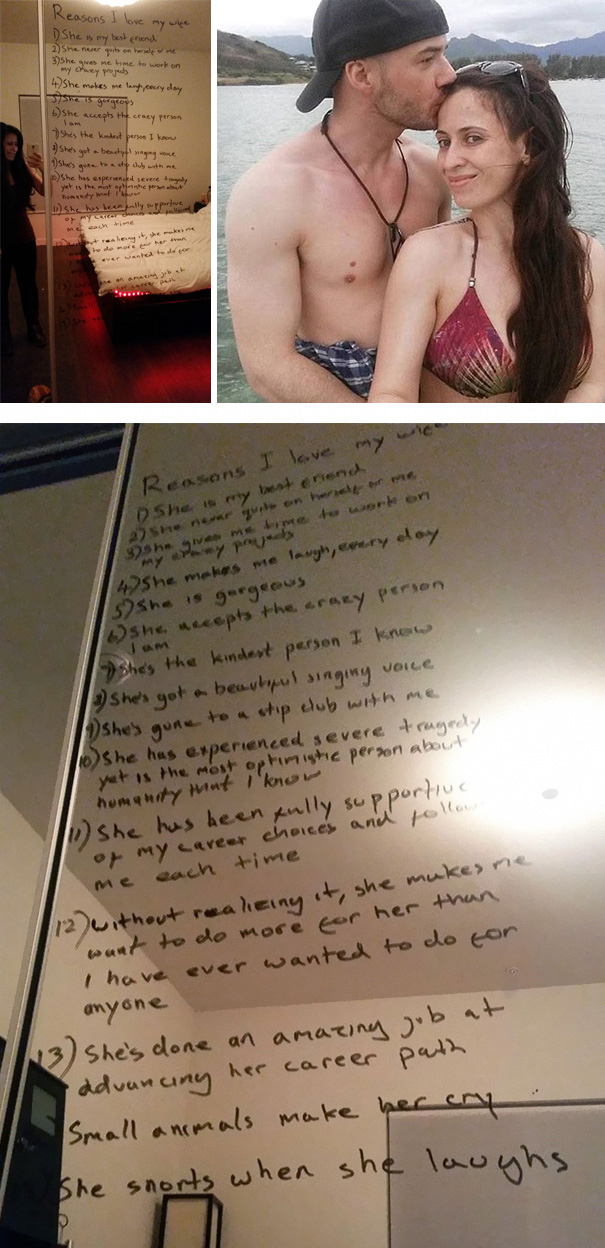 Reasons I love my wife
1) She is my best friend
2) She never quits on herself or me
3) She gives me time to work on
my crazy projects
4) She makes me laugh, every day
5) She is gorgeous
6) She accepts the crazy person
I am
7) She's the kindest person I know
8) She's got a beautiful singing voice
9) She's gone to a stip club with me
10) She has experienced severe tragedy
yet is the most optimistic person about
humanity that I know
11) She has been fully supportive
of my career choices and
me each time
realizing it, she makes me
to do more for her than
ever wanted to do for
an amazing job at
career path
Reasons I love my wife
1) She is my best friend
2) She never quits on herself or me
3) She gives me time to work on
my crazy projects
4) She makes me laugh, every day
5) She is gorgeous
6) She accepts the crazy person
I am
7) She's the kindest person I know
8) She's got a beautiful singing voice
9) She's gone to a stip club with me
10) She has experienced severe tragedy
yet is the most optimistic person about
humanity that I know
11) She has been fully supportive
of my career choices and follow
me each time
12) Without realizing it, she makes me
want to do more for her than
I have ever wanted to do for
anyone
13) She's done an amazing job at
advancing her career path
Small animals make her cry
She snorts when she laughs